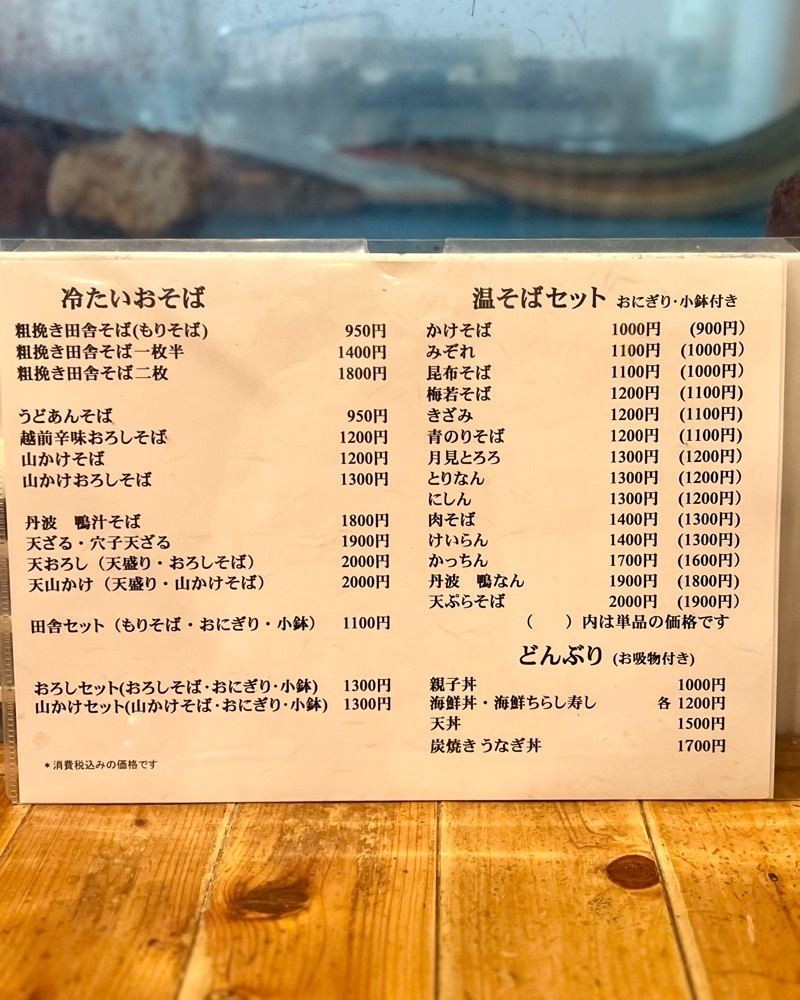 冷たいおそば
粗挽き田舎そば(もりそば) 950円
粗挽き田舎そば一枚半 1400円
粗挽き田舎そば二枚 1800円
うどあんそば 950円
越前辛味おろしそば 1200円
山かけそば 1200円
山かけおろしそば 1300円
丹波　鴨汁そば 1800円
天ざる・穴子天ざる 1900円
天おろし（天盛り・おろしそば） 2000円
天山かけ（天盛り・山かけそば） 2000円
田舎セット（もりそば・おにぎり・小鉢） 1100円
おろしセット(おろしそば・おにぎり・小鉢) 1300円
山かけセット(山かけそば・おにぎり・小鉢) 1300円
＊消費税込みの価格です
温そばセット おにぎり・小鉢付き
かけそば 1000円 (900円)
みぞれ 1100円 (1000円)
昆布そば 1100円 (1000円)
梅若そば 1200円 (1100円)
きざみ 1200円 (1100円)
青のりそば 1200円 (1100円)
月見とろろ 1300円 (1200円)
とりなん 1300円 (1200円)
にしん 1300円 (1200円)
肉そば 1400円 (1300円)
けいらん 1400円 (1300円)
かっちん 1700円 (1600円)
丹波　鴨なん 1900円 (1800円)
天ぷらそば 2000円 (1900円)
（　　）内は単品の価格です
どんぶり (お吸物付き)
親子丼 1000円
海鮮丼・海鮮ちらし寿し 各 1200円
天丼 1500円
炭焼きうなぎ丼 1700円